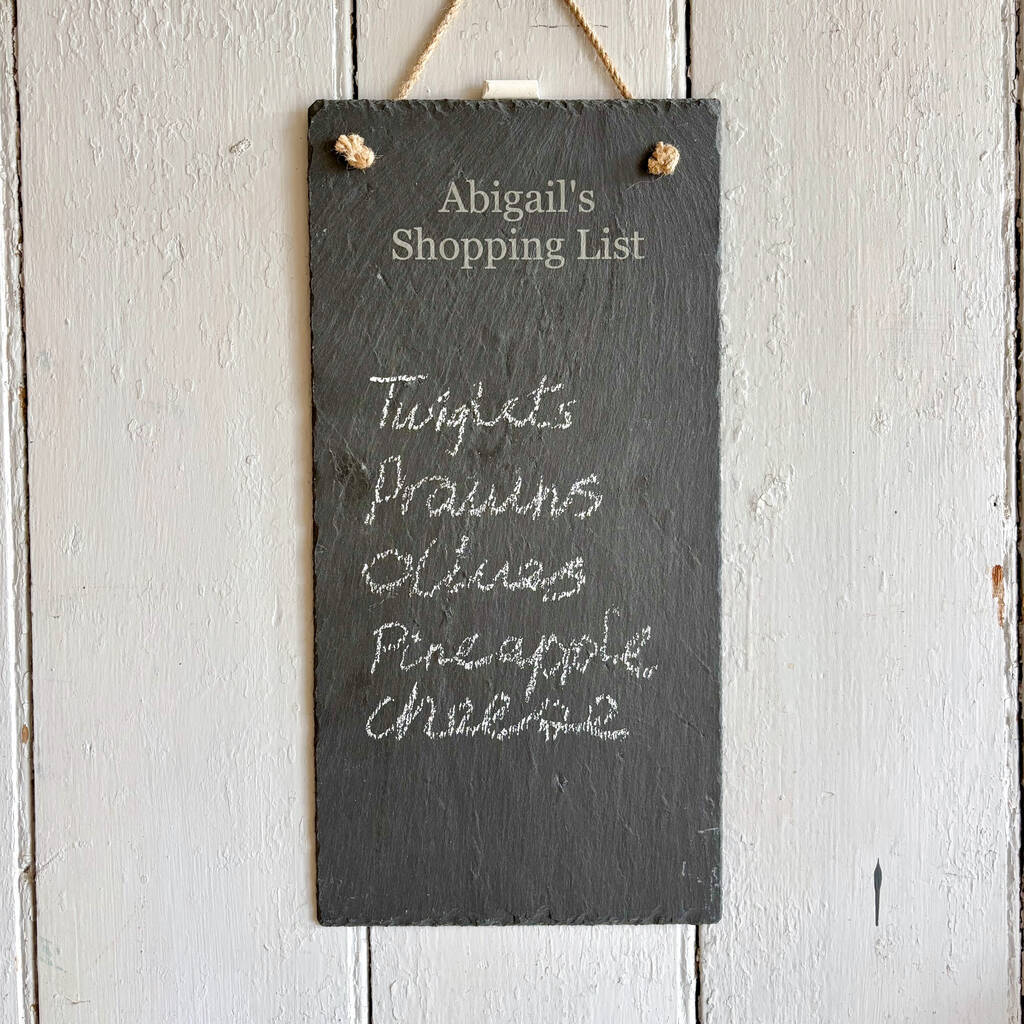 Abigail's
Shopping List
Twiglets
Prawns
Olives
Pineapple
cheese